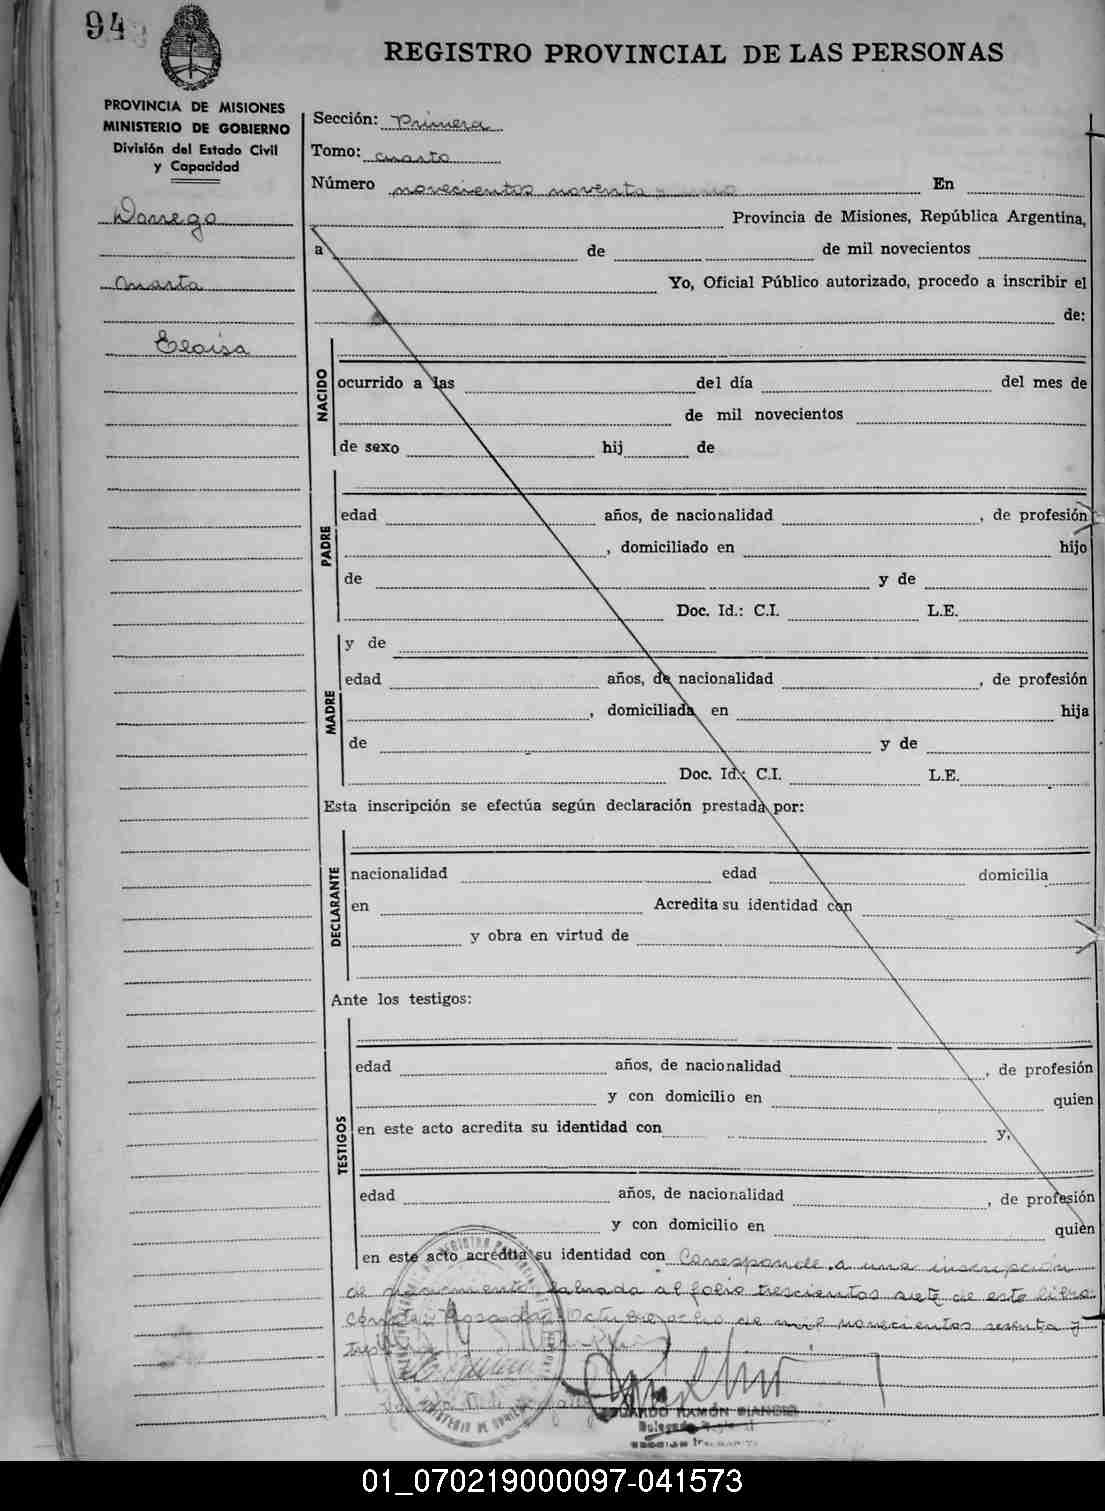 94
REGISTRO PROVINCIAL DE LAS PERSONAS
PROVINCIA DE MISIONES
MINISTERIO DE GOBIERNO
División del Estado Civil
y Capacidad
Dorrego
Marta
Eloisa
Sección: Primera
Tomo: cuarto
Número novecientos noventa y uno En
Provincia de Misiones, República Argentina,
a de de mil novecientos
Yo, Oficial Público autorizado, procedo a inscribir el
de:
NACIDO
ocurrido a las del día del mes de
de mil novecientos
de sexo hij de
PADRE
edad años, de nacionalidad , de profesión
, domiciliado en hijo
de y de
Doc. Id.: C.I. L.E.
MADRE
y de
edad años, de nacionalidad , de profesión
, domiciliada en hija
de y de
Doc. Id.: C.I. L.E.
Esta inscripción se efectúa según declaración prestada por:
DECLARANTE
nacionalidad edad domicilia
en Acredita su identidad con
y obra en virtud de
Ante los testigos:
TESTIGOS
edad años, de nacionalidad , de profesión
y con domicilio en quien
en este acto acredita su identidad con y,
edad años, de nacionalidad , de profesión
y con domicilio en quien
en este acto acredita su identidad con Corresponde a una inscripción
de nacimiento, labrada al folio trescientos siete de este libro.
Conste: Posadas, Octubre ocho de mil novecientos sesenta y
EDUARDO RAMÓN BIANCHI
Delegado
01_070219000097-041573